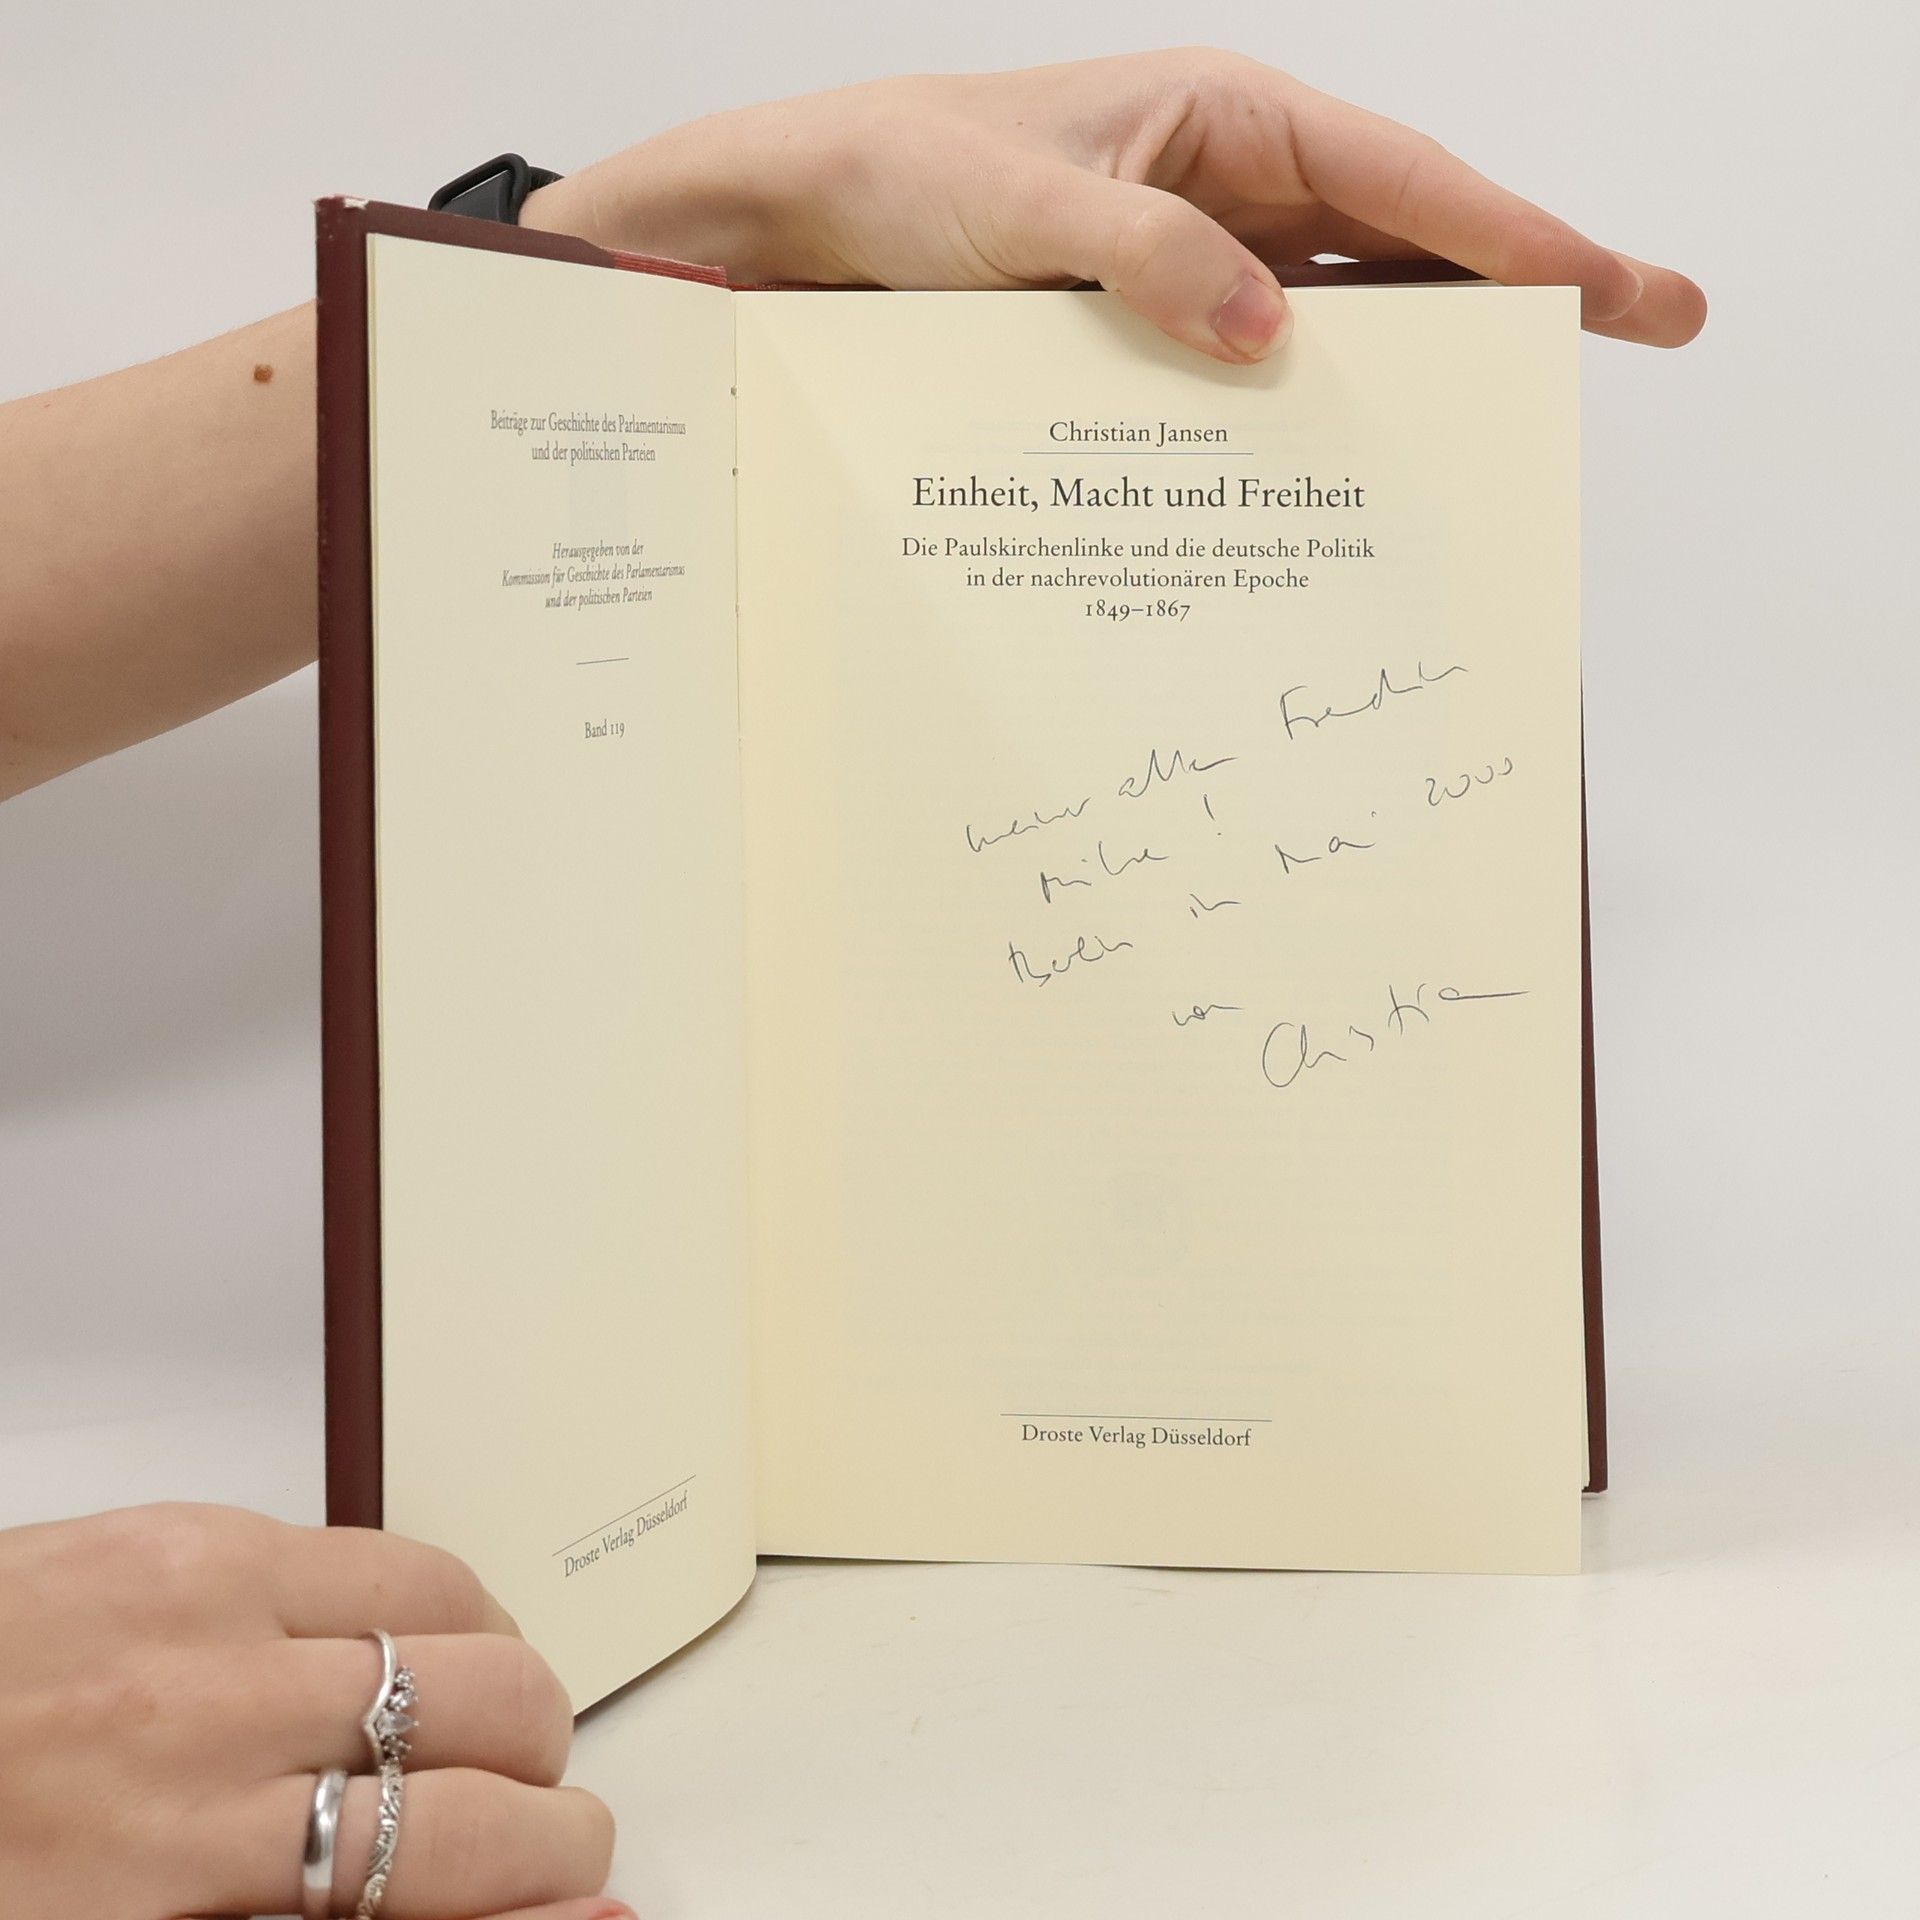 Beiträge zur Geschichte des Parlamentarismus
und der politischen Parteien
Herausgegeben von der
Kommission für Geschichte des Parlamentarismus
und der politischen Parteien
Band 119
Droste Verlag Düsseldorf
Christian Jansen
Einheit, Macht und Freiheit
Die Paulskirchenlinke und die deutsche Politik
in der nachrevolutionären Epoche
1849–1867
meiner alten Freundin
!
Berlin im Mai 2000
von Christian
Droste Verlag Düsseldorf